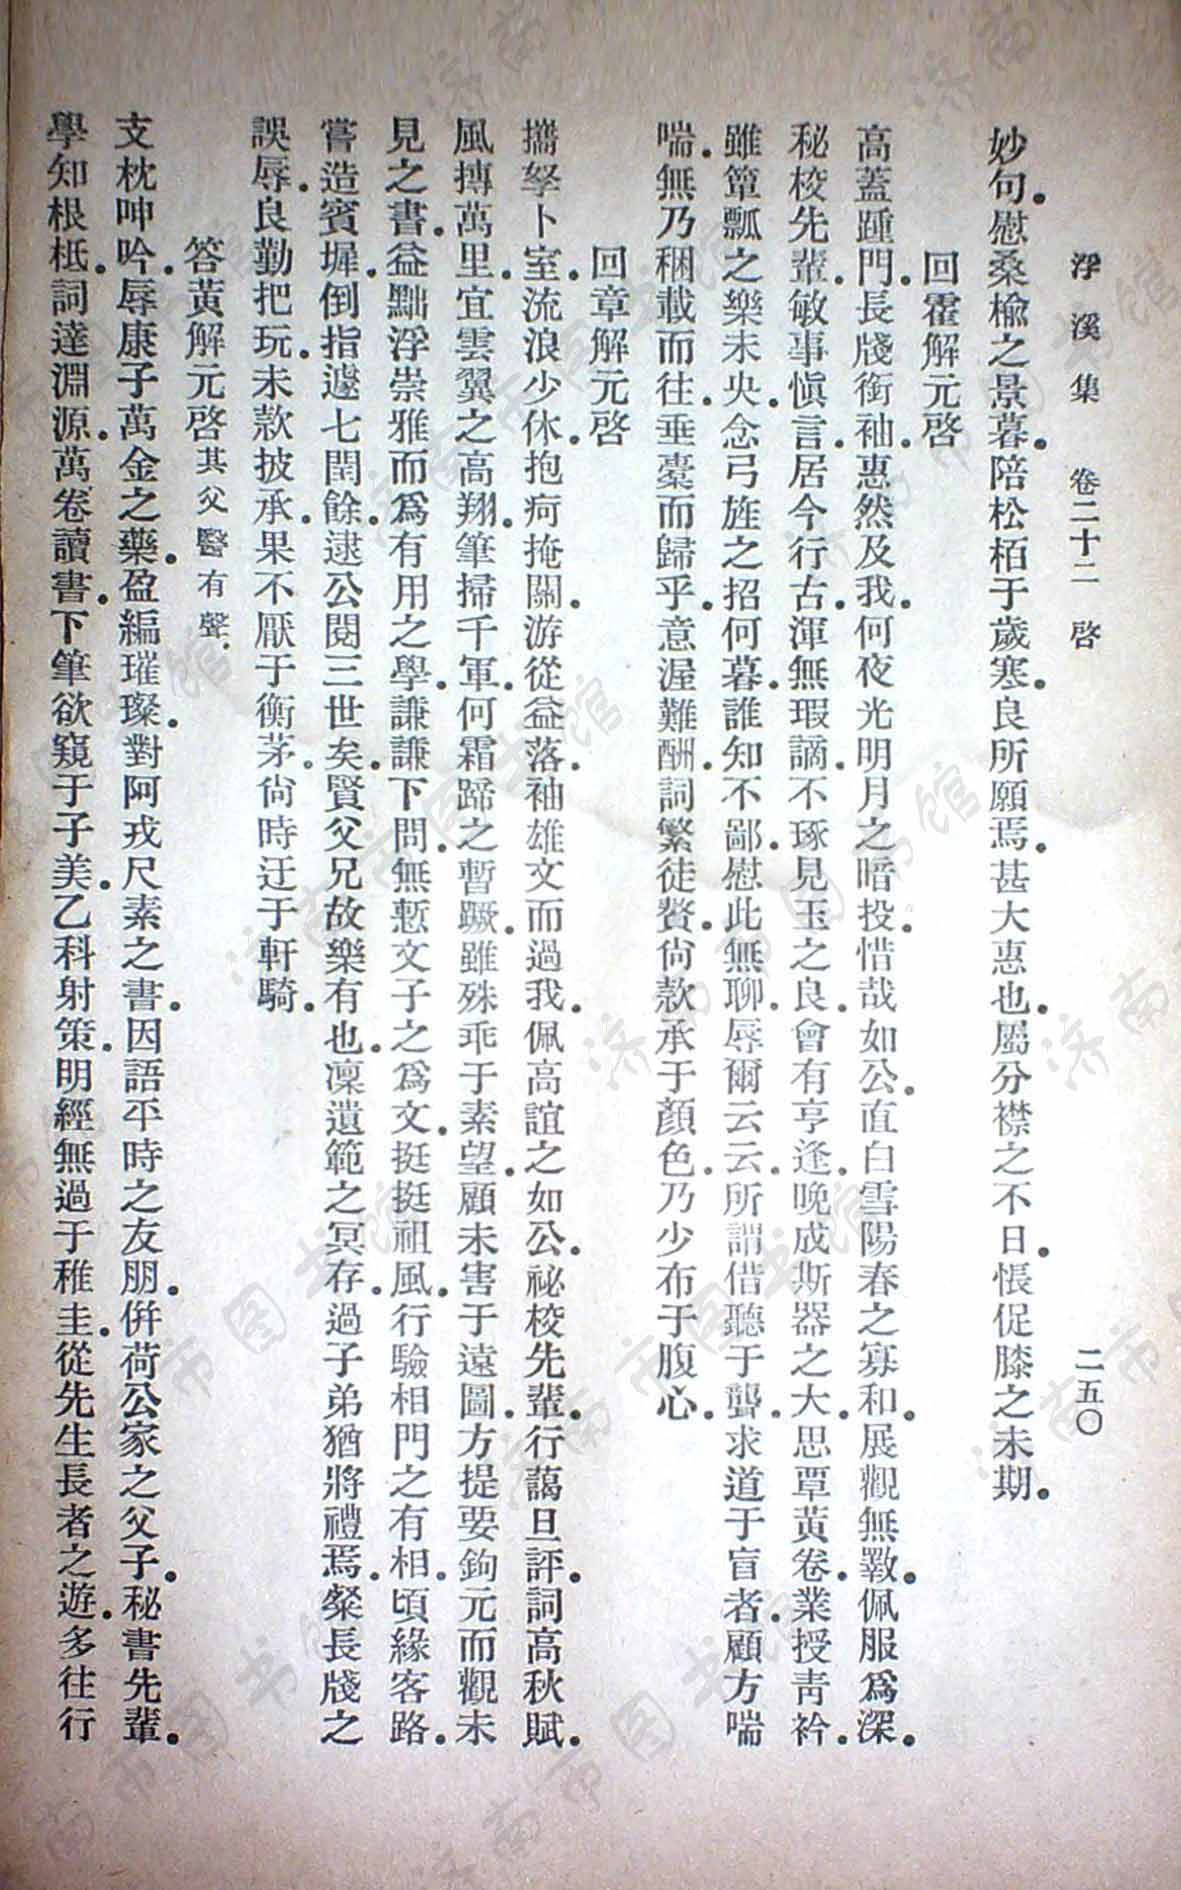 浮溪集　卷二十二　啓　二五〇
妙句。慰桑楡之景暮。陪松栢于歲寒。良所願焉。甚大惠也。屬分襟之不日。悵促膝之未期。
回霍解元啓
高蓋踵門。長牋銜袖。惠然及我。何夜光明月之暗投。惜哉如公。直白雪陽春之寡和。展觀無斁。佩服爲深。
秘校先輩。敏事愼言。居今行古。渾無瑕謫。不琢見玉之良。會有亨逢。晚成斯器之大。思覃黃卷。業授靑衿。
雖簞瓢之樂未央。念弓旌之招何暮。誰知不鄙。慰此無聊。辱爾云云。所謂借聽于聾。求道于盲者。顧方喘
喘。無乃稇載而往。垂橐而歸乎。意渥難酬。詞繁徒贅。尙款承于顏色。乃少布于腹心。
回章解元啓
攜孥卜室。流浪少休。抱疴掩關。游從益落。袖雄文而過我。佩高誼之如公。祕校先輩。行藹旦評。詞高秋賦。
風搏萬里。宜雲翼之高翔。筆掃千軍。何霜蹄之暫蹶。雖殊乖于素望。顧未害于遠圖。方提要鉤元而觀未
見之書。益黜浮崇雅而爲有用之學。謙謙下問。無慙文子之爲文。挺挺祖風。行驗相門之有相。頃緣客路。
嘗造賓墀。倒指遽七閏餘。逮公閱三世矣。賢父兄故樂有也。凜遺範之冥存。過子弟猶將禮焉。粲長牋之
誤辱。良勤把玩。未款披承。果不厭于衡茅。尙時迂于軒騎。
答黃解元啓其父醫有聲。
支枕呻吟。辱康子萬金之藥。盈編璀璨。對阿戎尺素之書。因語平時之友朋。倂荷公家之父子。秘書先輩。
學知根柢。詞達淵源。萬卷讀書。下筆欲窺于子美。乙科射策。明經無過于稚圭。從先生長者之遊。多往行